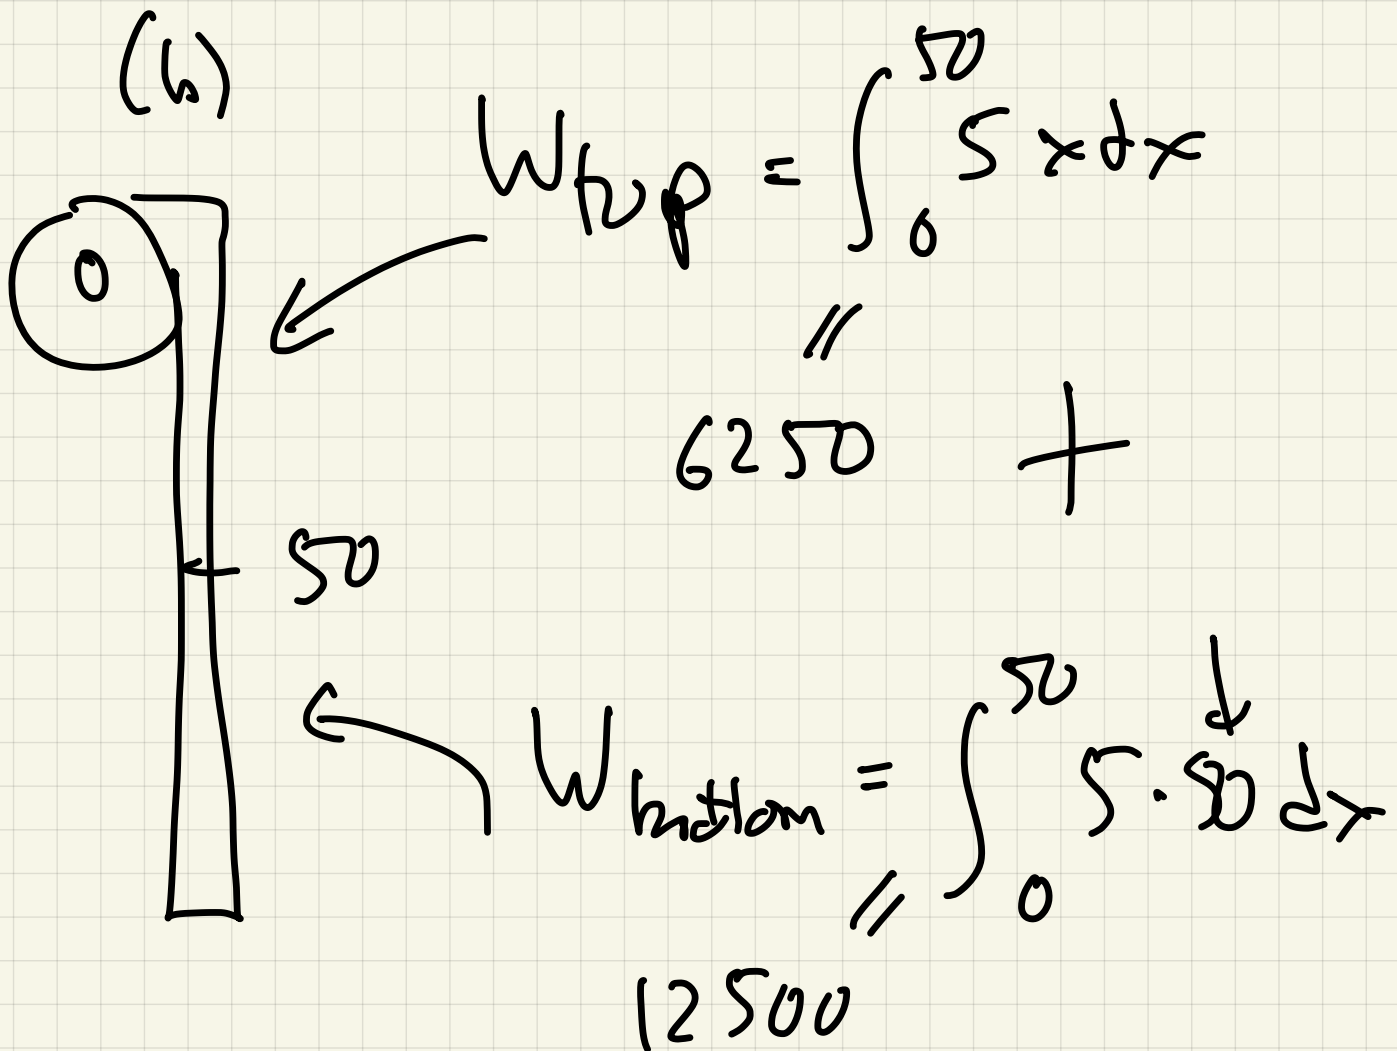 (b)
W_top = ∫_0^50 5 x dx
0
//
6250 +
50
W_bottom = ∫_0^50 5 · 50 dx
//
12500